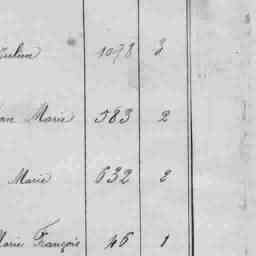 Julien 1078 3
Jean Marie 583 2
Marie 632 2
Marie François 46 1